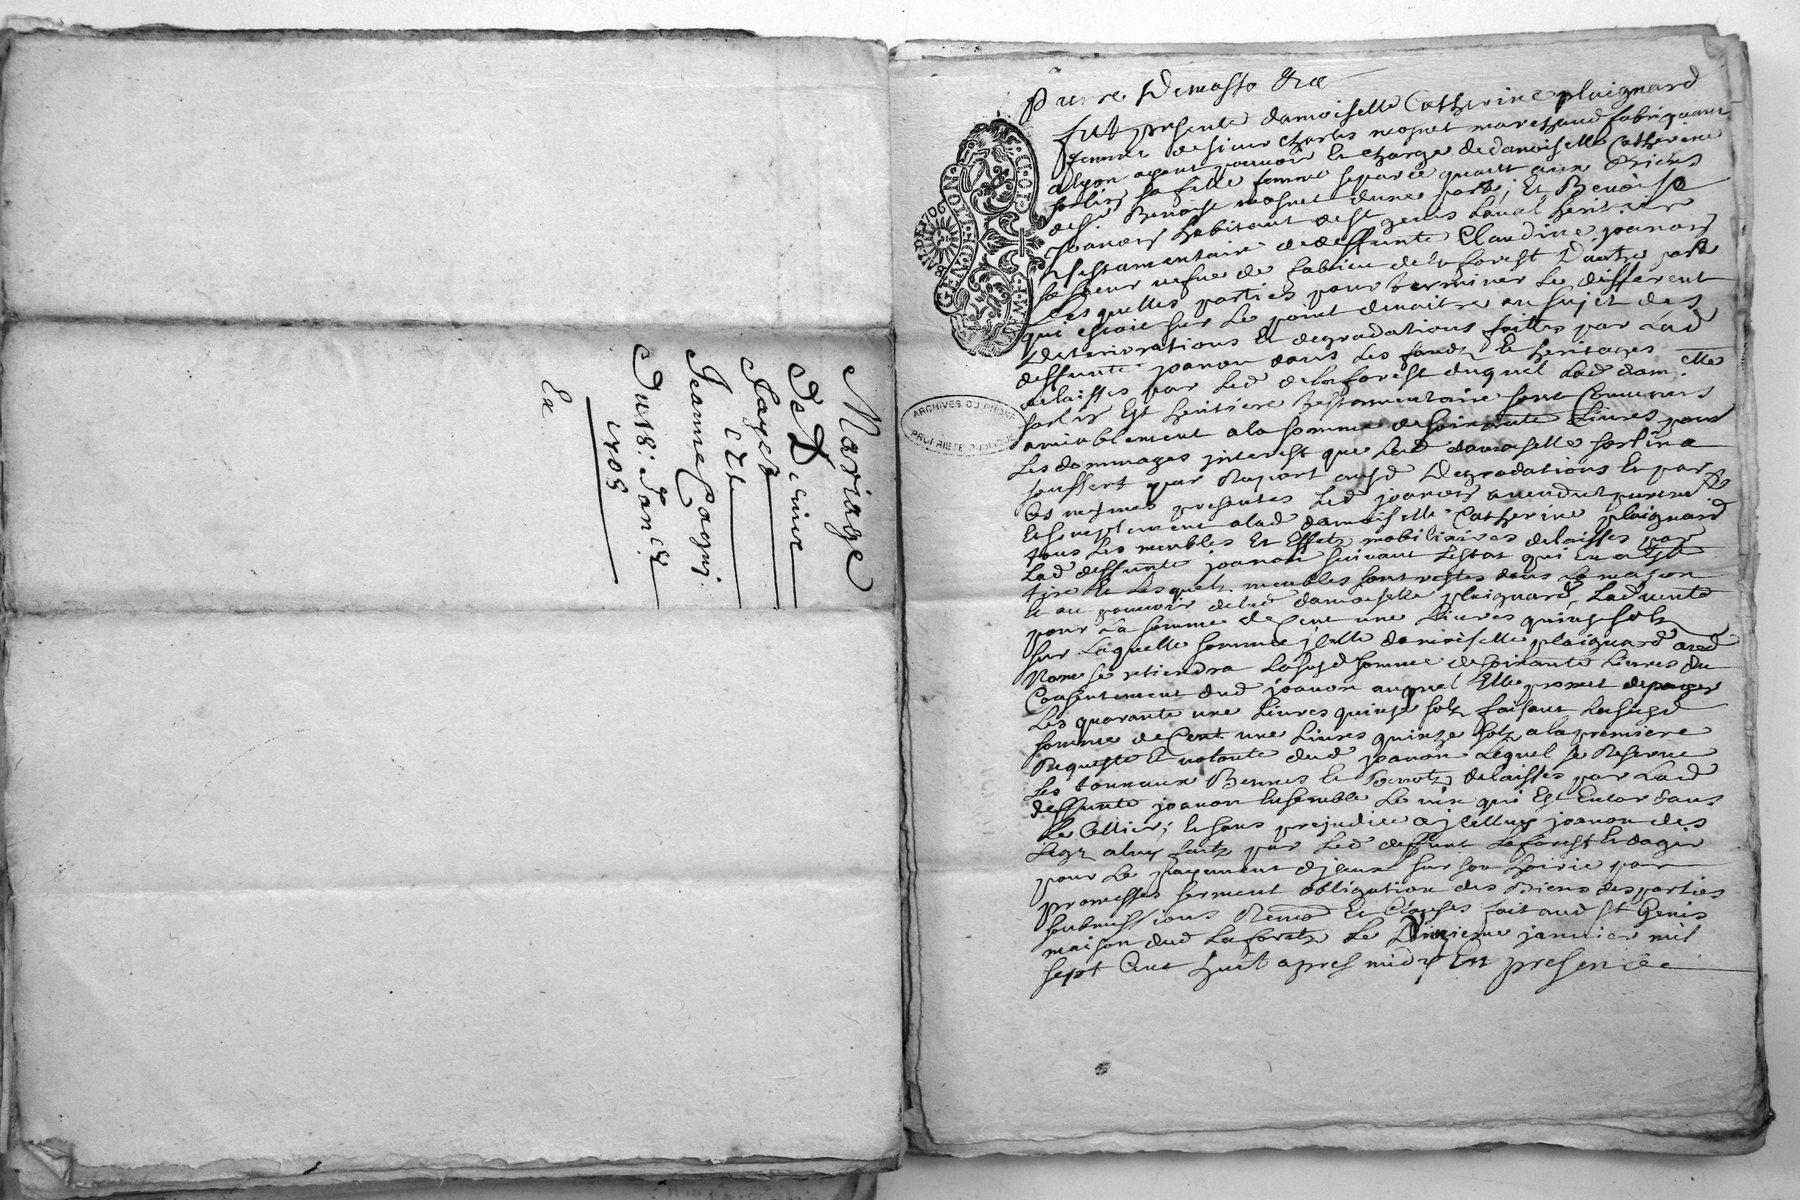 Mariage
De Denive
Paget
Et
Jeanne Cogny
Du 18e Janer
1708
Ex
ARCHIVES DU RHONE
PROPRIETE PUBLIQUE
GEN. DE LION
fut presente damoiselle Catherine plaignard
femme de sieur Charles mosnet marchand fabriquant
a lyon ayant pouvoir et charge de damoiselle Catherine
sa fille femme separée quant aux biens
de Sr Benoist mosnet dune part, Et Benoist
Joanon habitant de St genis Laval heritier
testamentaire de deffunte Claudine joanon
sa soeur vefue de fabien delaforest Dautre part
Lesquelles parties pour terminer Le different
qui estoit sur Le point de naitre au sujet des
deteriorations Et degradations faittes par Lad
deffunte joanon dans Les fondz Et heritages
delaissés par Led delaforest duquel Lad damelle
Est heritiere testamentaire sont Convenus
amiablement a la somme de soixante Livres pour
Les dommages interest que Lad damoiselle
souffert par Raport ausd Degradations Et par
Ces mesmes presentes Led joanon a vendu purement
Et simplement a lad damoiselle Catherine plaignard
tous Les meubles Et Effets mobiliaires delaissés par
Lad deffunte joanon suivant Lestat qui En a esté
tiré Et Lesquels meubles sont restés dans La maison
Et au pouvoir de lad damoiselle plaignard, Lad vente
pour La somme de Cent une Livres quinze solz
sur Laquelle somme jcelle damoiselle plaignard aud
Nom se retiendra La susd somme de soixante Livres du
Consentement dud joanon auquel Elle promet de payer
Les quarante une Livres quinze solz faisant La susd
somme de Cent une Livres quinze solz a la premiere
Requeste Et volonté dud joanon Lequel se Reserve
Les tonneaux Bennes Et delaissés par Lad
deffunte joanon Ensemble Le vin qui Est Encor dans
Le Cellier; Et sans prejudice a jcelluy joanon des
Legz a luy faitz par Led deffunt Laforest Et dagir
pour Le payement djceux sur son hoirie par
promesses serment obligation des Biens des parties
soubmissions Renon Et Clauses fait aud St Genis
maison dud Laforest Le Dixieme janvier mil
sept Cent huit apres midy En presence